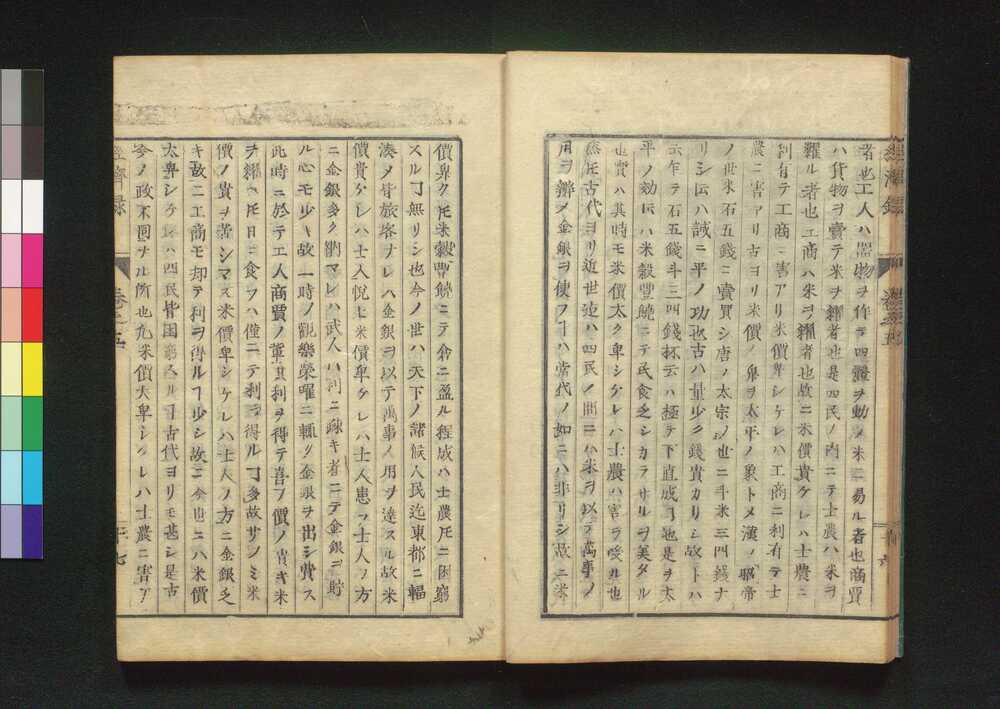 者也工人ハ器物ヲ作テ四體ヲ動メ米ニ易ル者也商賈
ハ貨物ヲ賣テ米ヲ糴者也是四民ノ内ニテ士農ハ米ヲ
糶ル者也工商ハ米ヲ糴者也故ニ米價貴ケレハ士農ニ
利有テ工商ニ害アリ米價卑シケレハ工商ニ利有テ士
農ニ害アリ古ヨリ米價ノ卑ヲ太平ノ象トメ漢ノ昭帝
ノ世米石五錢ニ賣買シ唐ノ太宗ノ世ニ斗米三四錢ナ
リシ𪜈ハ誠ニ平ノ功也古ハ量少ク錢貴カリシ故ト
云乍テ石五錢斗三四錢抔云ハ極テ下直成ヿ也是ヲ太
平ノ効𪜈ハ米穀豐饒ニテ民食乏シカラサルヲ美タル
也實ハ其時モ米價太ク卑シケレハ士農ハ害ヲ受ル也
然𪜈古代ヨリ近世迄ハ四民ノ間ニハ米ヲ以テ萬事ノ
用ヲ辨メ金銀ヲ使フヿハ當代ノ如ニハ非リシ故ニ米
經濟録
價卑ク𪜈米穀豐饒ニテ倉ニ盈ル程成ハ士農𪜈ニ困窮
スルヿ無リシ也今ノ世ハ天下ノ諸候人民迄東都ニ輻
湊メ皆旅客ナレハ金銀ヲ以テ萬事ノ用ヲ達スル故米
價貴ケレハ士人悅ヒ米價卑ケレハ士人患フ士人ノ方
ニ金銀多ク納マレハ武人ハ利ニ疎キ者ニテ金銀ヲ貯
ル心モ少キ故一時ノ觀樂榮曜ニ輙ク金銀ヲ出シ費ス
此時ニ於テエ人商賈ノ輩其利ヲ得テ喜フ價ノ貴キ米
ヲ糴ヘ𪜈日ニ食フハ僅ニテ利ヲ得ルヿ多故サノミ米
價ノ貴ヲ苦シマス米價卑シケレハ士人ノ方ニ金銀乏
キ故ニ工商モ却テ利ヲ得ルヿ少シ故ニ今ノ世ニハ米價
太卑シケレハ四民皆困窮スルヿ古代ヨリモ甚シ是古
今ノ政不同ナル所也凡米價大卑シケレハ士農ニ害ア
經濟録
卷之五
廿七